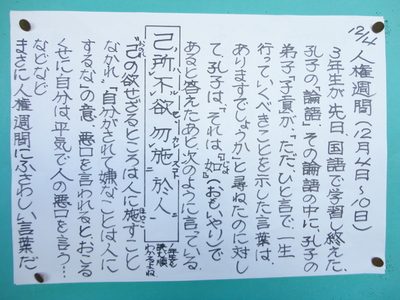 12/4 人権週間(12月4日～10日)
3年生が先日、国語で学習し終えた、
孔子の「論語」。その論語の中に、孔子の
弟子「子夏が、「ただひと言で、一生
行っていくべきことを示した言葉は、
ありますでしょうか」と尋ねたのに対し
て、孔子は、「それは、如(おもいやり)で
あると答えたあと次のように言っている。
己所不欲勿施於人
"己の欲せざるところは人に施すこと
なかれ「自分がされて嫌なことは人に
するな」の意。悪口を言われるとおこる
くせに自分は平気で人の悪口を言う…
などなど
まさに人権週間にふさわしい言葉だ